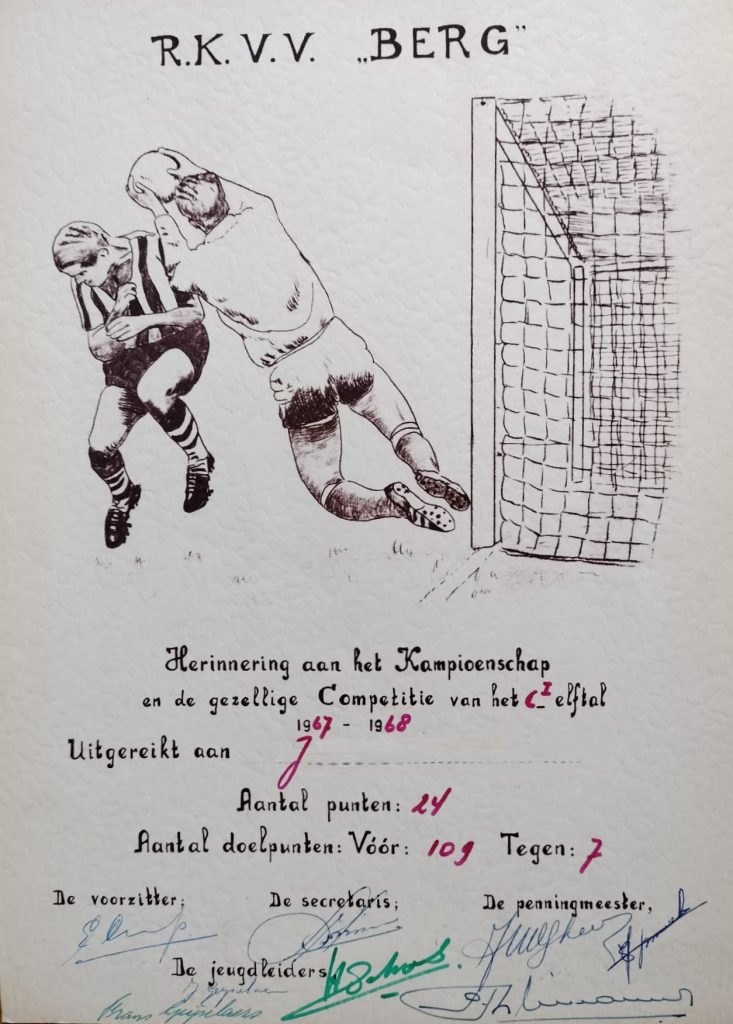 R.K.V.V. „BERG"
Herinnering aan het Kampioenschap
en de gezellige Competitie van het C I elftal
1967 - 1968
Uitgereikt aan J
Aantal punten: 24
Aantal doelpunten: Vóór: 109 Tegen: 7
De voorzitter; De secretaris; De penningmeester,
De jeugdleiders